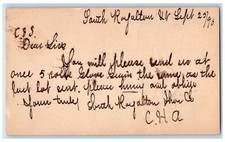 South Royalton Vt Sept 25/93
C & S.
Dear Sirs
You will please send us at
once 5 rolls Glove Grain the same as the
last lot sent. Please hurry and oblige
Yours truly South Royalton Shoe Co
C.H.A